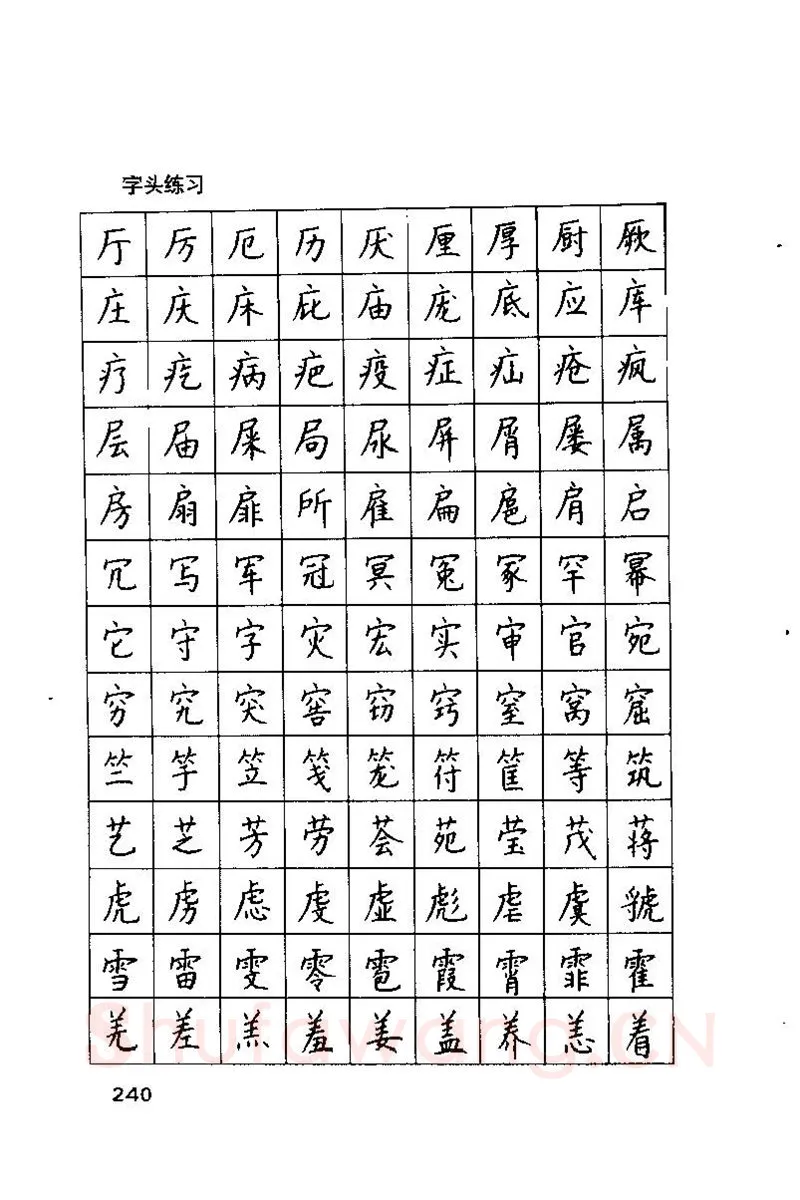 字头练习
厅厉厄历厌厘厚厨厥
庄庆床庇庙庞底应库
疗疙病疤疫症疝疮疯
层届屎局尿屏屑屡属
房扇扉所雇扁扈肩启
冗写军冠冥冤冢罕幂
它守字灾宏实审官宛
穷究突窖窃窍窒窝窟
竺竽笠笺笼符筐等筑
艺芝芳劳荟苑莹茂蒋
虎虏虑虔虚彪虐虞虢
雪雷雯零雹霞霄霏霍
羌差羔羞姜盖养恙着
Shufawang.CN
240